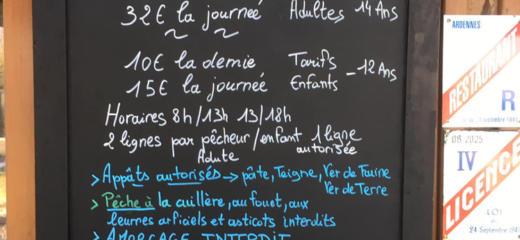 32€ la journeé Adultes 14 Ans
10€ la demie Tarifs
15€ la journeé Enfants - 12 Ans
Horaires 8h/13h 13/18h
2 lignes par pêcheur/enfant 1 ligne
Adulte autorisée
> Appâts autorisés → pâte, Teigne, Ver de Farine
Ver de Terre
> Pêche à la cuillère, au fouet, aux
leurres artificiels et asticots interdits
> AMORÇAGE INTERDIT
ARDENNES
RESTAURANT
R
08.2025
IV
LICENCE
LOI
24 Septembre